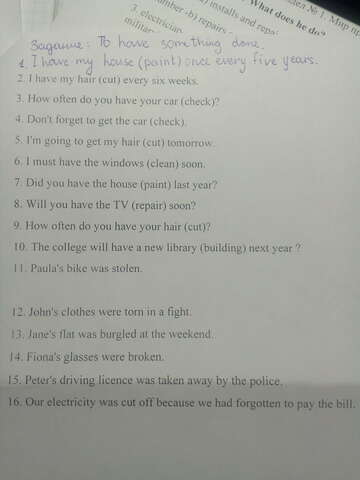 What does he do?
installs and
repairs -
3. electrician
Задание: To have something done.
1. I have my house (paint) once every five years.
2. I have my hair (cut) every six weeks.
3. How often do you have your car (check)?
4. Don't forget to get the car (check).
5. I'm going to get my hair (cut) tomorrow.
6. I must have the windows (clean) soon.
7. Did you have the house (paint) last year?
8. Will you have the TV (repair) soon?
9. How often do you have your hair (cut)?
10. The college will have a new library (building) next year ?
11. Paula's bike was stolen.
12. John's clothes were torn in a fight.
13. Jane's flat was burgled at the weekend.
14. Fiona's glasses were broken.
15. Peter's driving licence was taken away by the police.
16. Our electricity was cut off because we had forgotten to pay the bill.